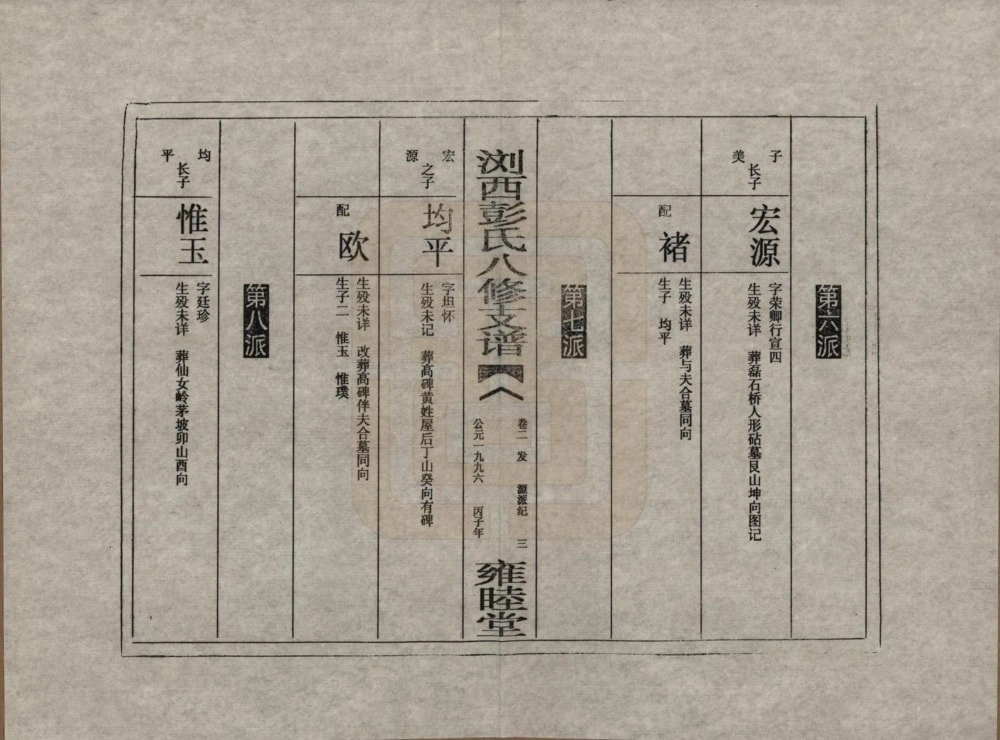 第六派
子美长子
宏源
字荣卿行宣四
生殁未详 葬磊石桥人形砧墓艮山坤向图记
配
褚
生殁未详 葬与夫合墓同向
生子 均平
第七派
浏西彭氏八修支谱
卷二 发 源派纪 三
公元一九九六 丙子年
雍睦堂
宏源之子
均平
字坦怀
生殁未记 葬高碑黄姓屋后丁山癸向有碑
配
欧
生殁未详 改葬高碑伴夫合墓同向
生子二 惟玉 惟璞
第八派
均平长子
惟玉
字廷珍
生殁未详 葬仙女岭茅坡卯山酉向